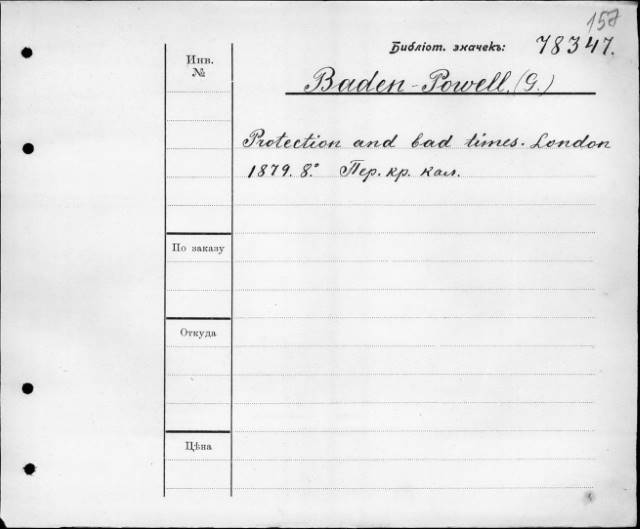 157
Библіот. значекъ: 78347.
Инв.
№
Baden-Powell, (G.)
Protection and bad times. London
1879. 8.° Пер. кр. кал.
По заказу
Откуда
Цѣна